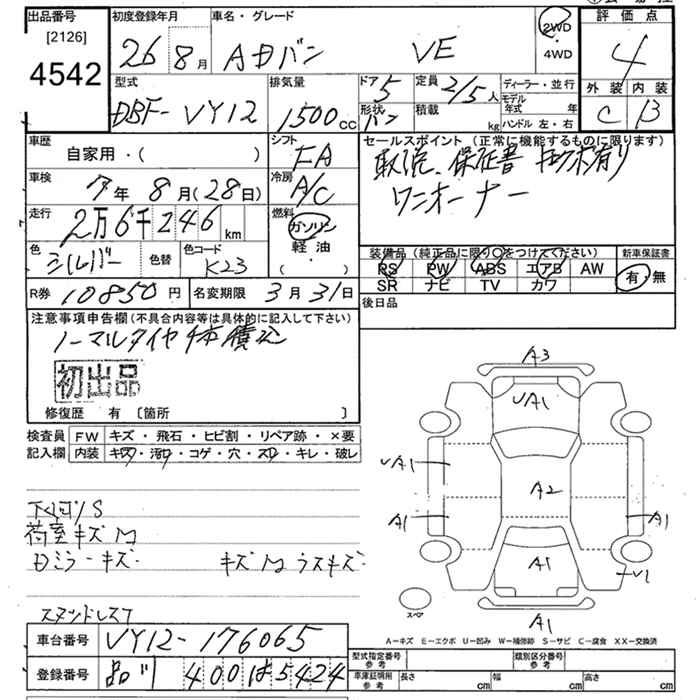 出品番号
[2126]
4542
初度登録年月
26 8月
車名・グレード
ADバン VE
2WD
・
4WD
評価点
4
外装 内装
C B
型式
DBF-VY12
排気量
1500cc
ドア 5
定員 2/5人
形状 バン
積載 kg
ディーラー・並行
モデル年式 年
ハンドル 左・右
車歴
自家用・( )
シフト
FA
車検
7年 8月(28日)
冷房
A/C
走行
2万6千246km
燃料
ガソリン
軽油
・
( )
色
シルバー
色替
色コード
K23
R券 10850円
名変期限 3月31日
セールスポイント(正常に機能するものに限ります)
取説、保証書
ワンオーナー
装備品(純正品に限り○をつけてください)
PS PW ABS エアB AW
SR ナビ TV カワ
新車保証書
有・無
後日品
注意事項申告欄(不具合内容等は具体的に記入して下さい)
ノーマルタイヤ4本積込
初出品
修復歴 有 〔箇所 〕
検査員記入欄
FW キズ・飛石・ヒビ割・リペア跡・×要
内装 キズ・汚れ・コゲ・穴・スレ・キレ・破レ
下回りS
荷室キズM
Dミラーキズ キズM ラスキズ
スタッドレス7
A3
UA1
UA1
A2
A1
A1
A1
U1
A1
スペア
A－キズ E－エクボ U－凹み W－補修跡 S－サビ C－腐食 XX－交換済
車台番号 VY12-176065
登録番号 品川 400は5424
型式指定番号 参考
類別区分番号 参考
車庫証明用 参考
長さ cm
幅 cm
高さ cm